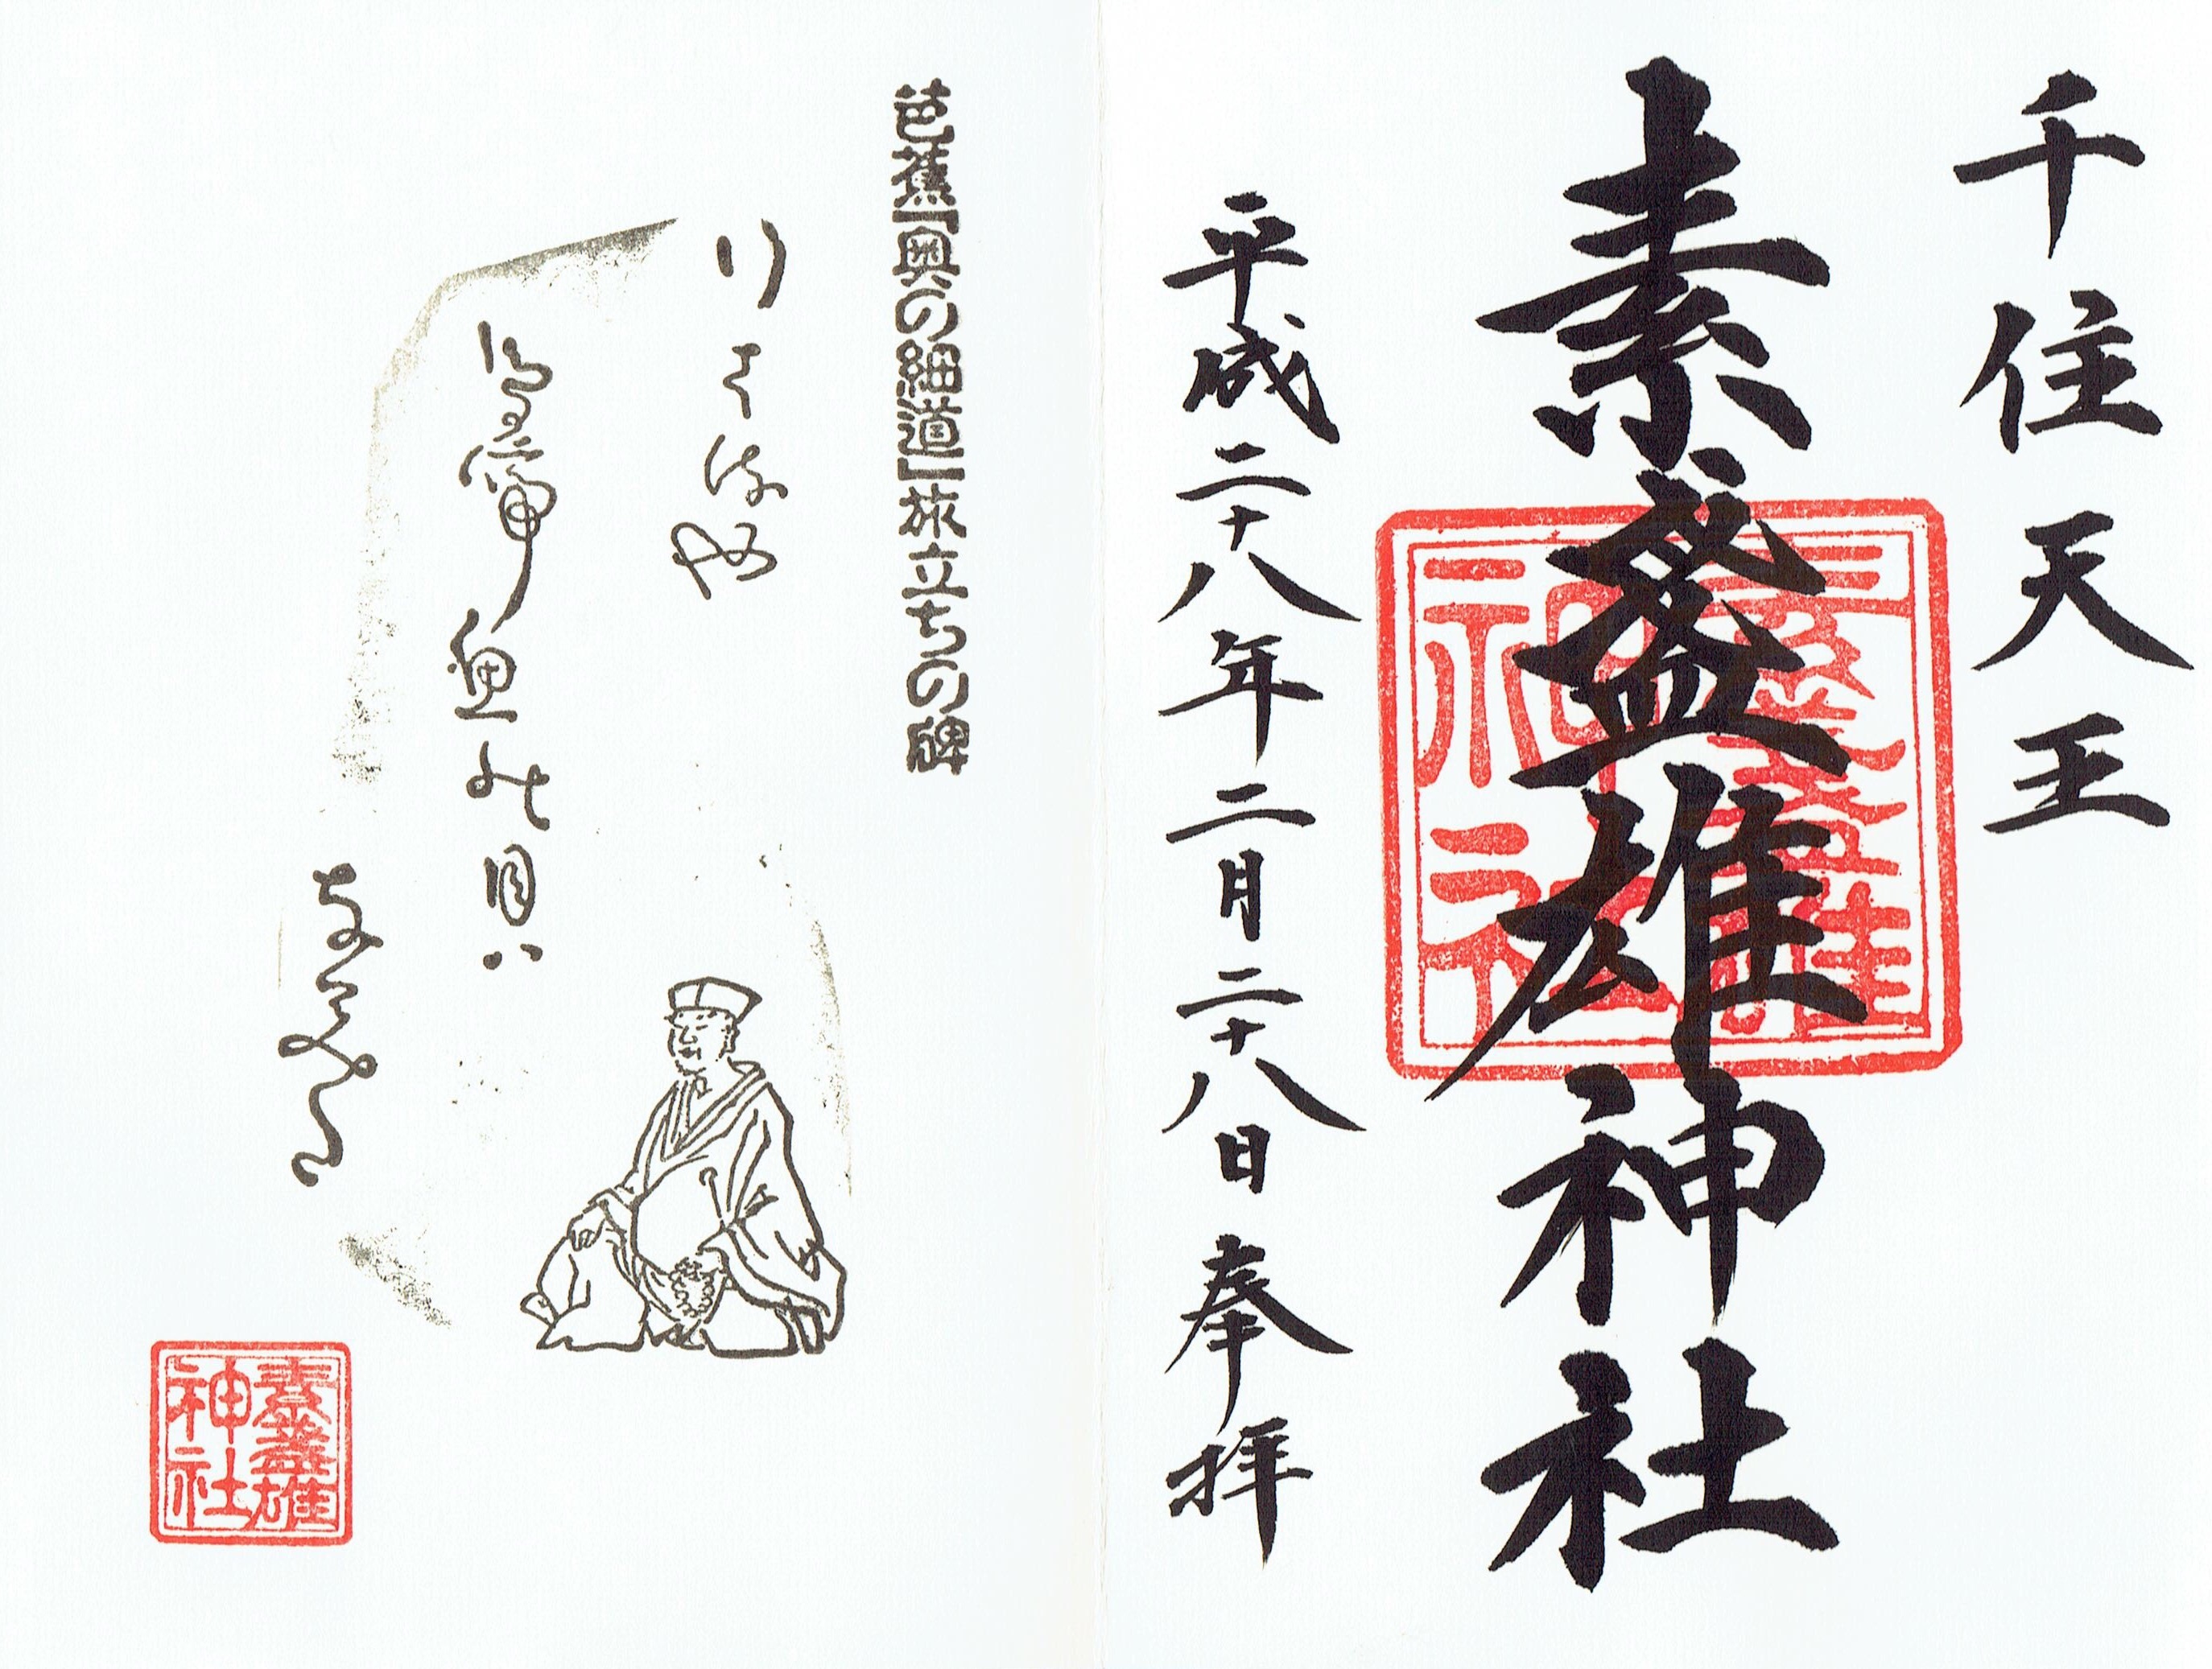 千住天王
素盞雄神社
素盞雄
神社
平成二十八年二月二十八日 奉拝
芭蕉「奥の細道」旅立ちの碑
行はるや
鳥啼魚の目ハ
なみた
素盞雄
神社